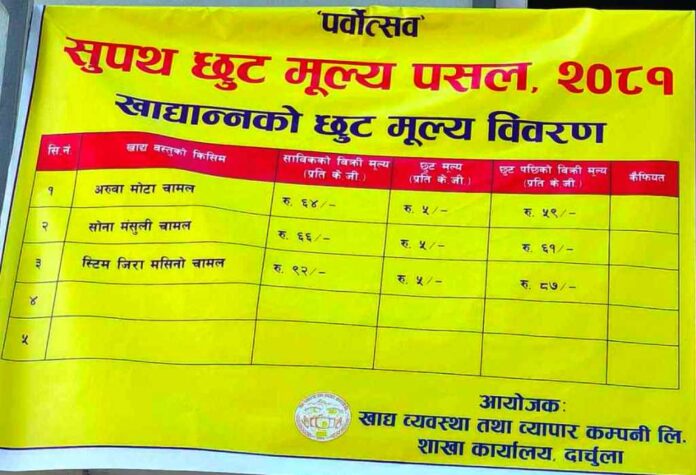 'पर्वोत्सव'
सुपथ छुट मूल्य पसल, २०८१
खाद्यान्नको छुट मूल्य विवरण
सि.नं. खाद्य वस्तुको किसिम साविकको बिक्री मूल्य (प्रति के.जी.) छुट मूल्य (प्रति के.जी.) छुट पछिको बिक्री मूल्य (प्रति के.जी.) कैफियत
१ अरुवा मोटा चामल रु. ६४/- रु. ५/- रु. ५९/-
२ सोना मंसुली चामल रु. ६६/- रु. ५/- रु. ६१/-
३ स्टिम जिरा मसिनो चामल रु. ९२/- रु. ५/- रु. ८७/-
४
५
आयोजक:
खाद्य व्यवस्था तथा व्यापार कम्पनी लि.
शाखा कार्यालय, दार्चुला